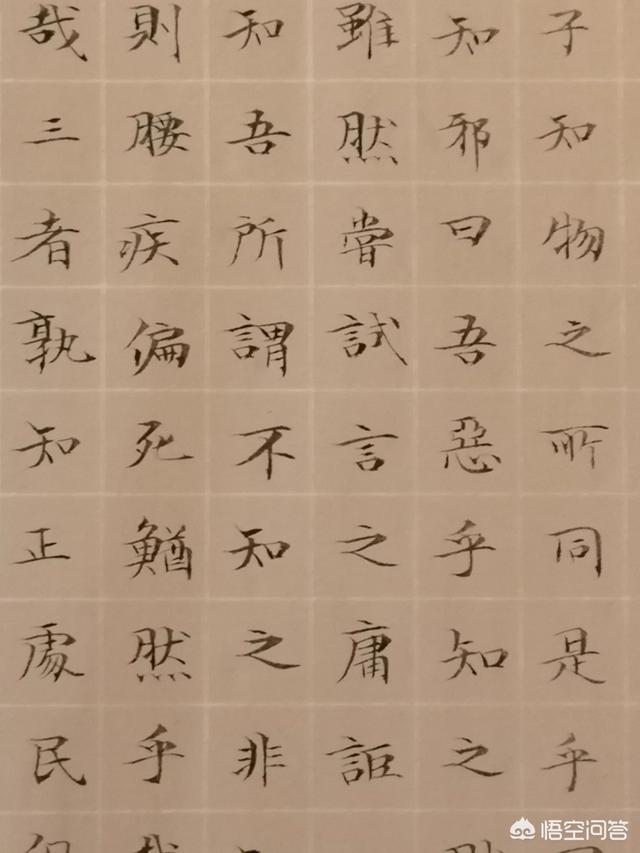 子知物之所同是乎
知邪曰吾惡乎知之
雖然嘗試言之庸詎
知吾所謂不知之非
則腰疾偏死鰌然乎
哉三者孰知正處民
悟空问答